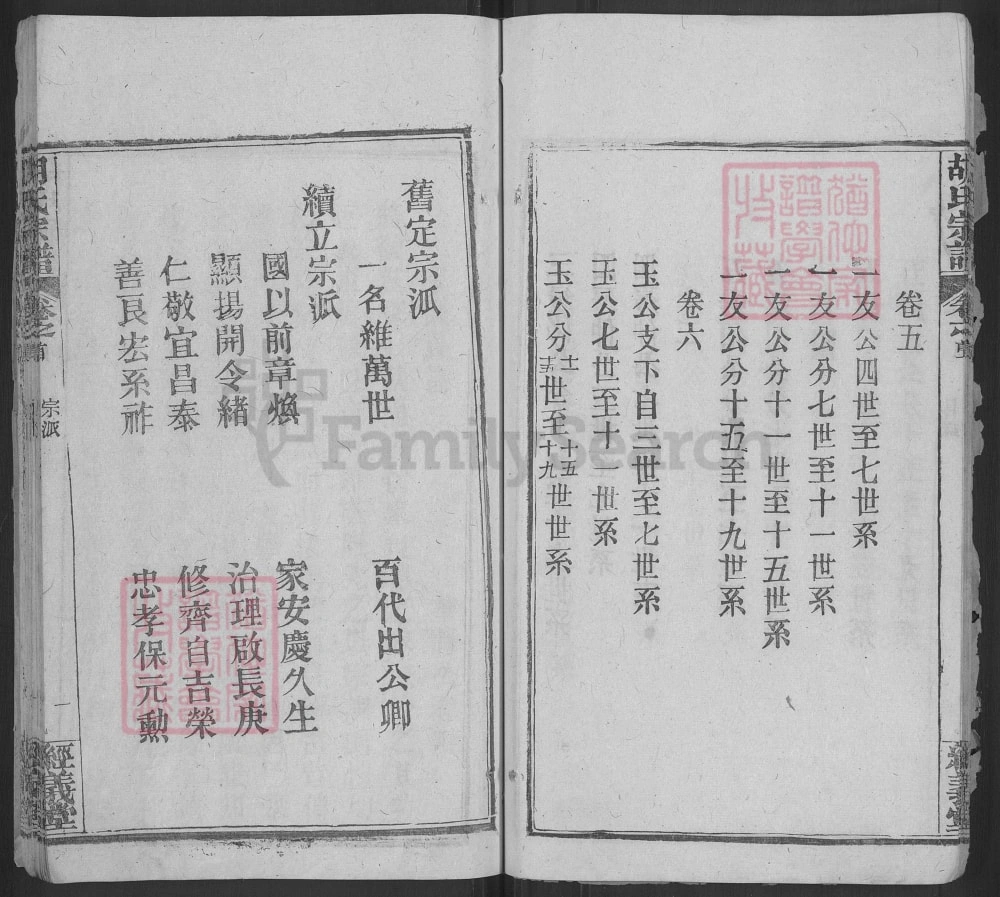 胡氏宗譜
卷五
一友公四世至七世系
一友公分七世至十一世系
一友公分十一世至十五世系
一友公分十五至十九世系
卷六
玉公支下自三世至七世系
玉公七世至十一世系
玉公分十一十五世至十五十九世世系
經義堂
舊定宗派
一名維萬世 百代出公卿
續立宗派
國以前章煥 家安慶久生
顯揚開令緒 治理啟長庚
仁敬宜昌泰 修齊自吉榮
善良宏系祚 忠孝保元勲
胡氏宗譜
卷之首
宗派
一
經義堂
FamilySearch